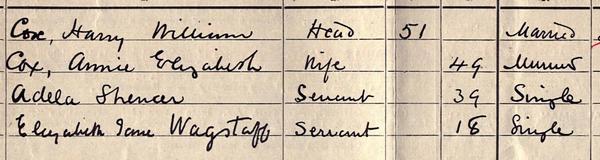 Cox, Harry William Head 51 Married
Cox, Annie Elizabeth Wife 49 Married
Adela Spencer Servant 39 Single
Elizabeth Jane Wagstaff Servant 18 Single